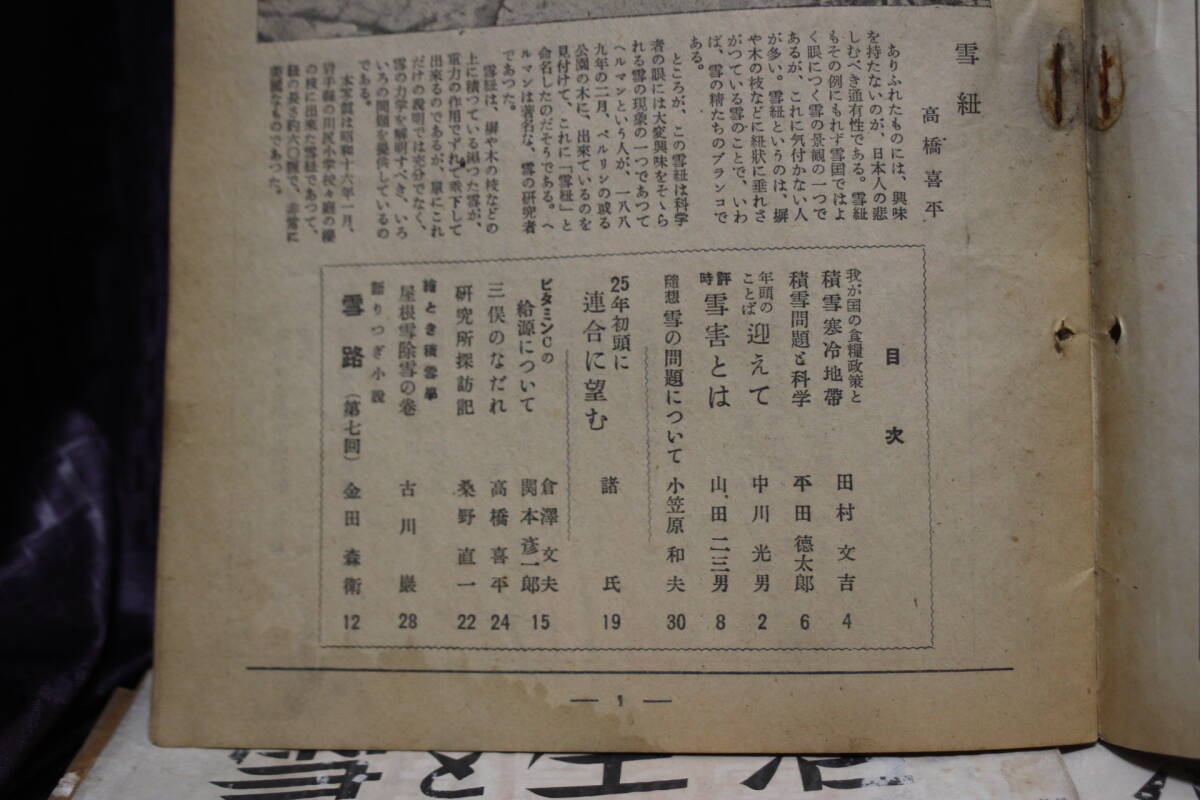 雪紐
高橋喜平
ありふれたものには、興味
を持たないのが、日本人の悲
しむべき通有性である。雪紐
もその例にもれず雪国ではよ
く眼につく雪の景観の一つで
あるが、これに気付かない人
が多い。雪紐というのは、塀
や木の枝などに紐状に垂れさ
がつている雪のことで、いわ
ば、雪の精たちのブランコで
ある。
ところが、この雪紐は科学
者の眼には大変興味をそゝら
れる雪の現象の一つであつて
ヘルマンという人が、一八八
九年の二月、ベルリンの或る
公園の木に、出来ているのを
見付けて、これに「雪紐」と
命名したのだそうである。ヘ
ルマンは著名な、雪の研究者
であつた。
雪紐は、塀や木の枝などの
上に積つている湿つた雪が、
重力の作用でずれて垂下して
出来るのであるが、単にこれ
だけの説明では充分でなく、
雪の力学を解明すべき、いろ
いろの問題を提供しているの
である。
本写真は昭和十六年一月、
岩手縣の川尻小学校々庭の櫻
の枝に出来た雪紐であつて、
紐の長さ約六〇糎で、非常に
美麗なものであつた。
目次
我が国の食糧政策と
積雪寒冷地帶 田村文吉 4
積雪問題と科学 平田徳太郎 6
年頭のことば 迎えて 中川光男 2
時評 雪害とは 山田二三男 8
随想 雪の問題について 小笠原和夫 30
25年初頭に
連合に望む 諸氏 19
ビタミンCの
給源について 倉澤文夫 関本彦一郎 15
三俣のなだれ 高橋喜平 24
研究所探訪記 桑野直一 22
繪とき積雪學
屋根雪除雪の巻 古川巌 28
語りつぎ小説
雪路(第七回) 金田森衛 12
— 1 —